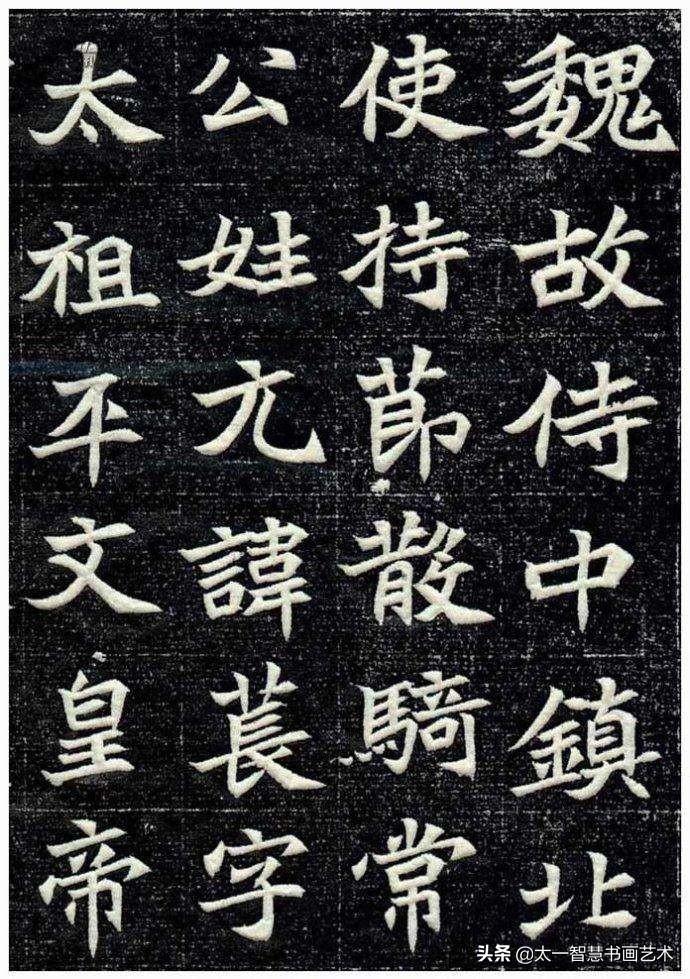 魏故侍中鎮北
使持莭散騎常
公姓元諱萇字
太祖平文皇帝
头条 @太一智慧书画艺术